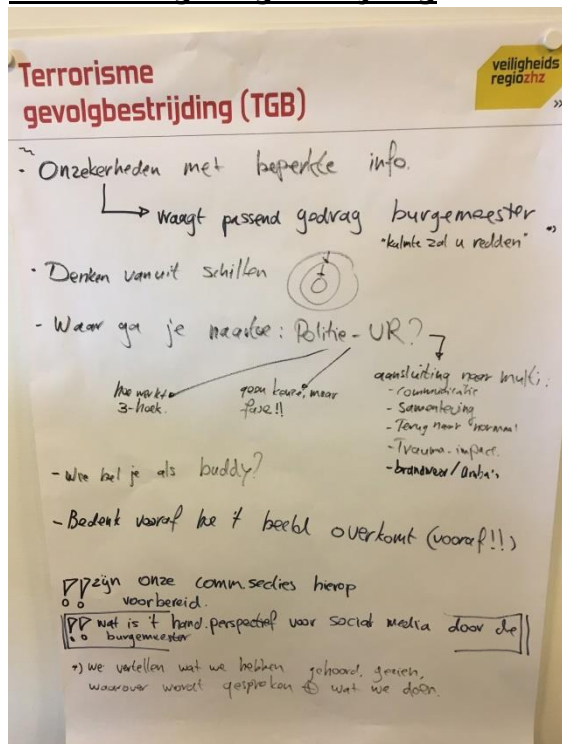 Terrorisme
gevolgbestrijding (TGB)
veiligheids
regiozhz
»
- Onzekerheden met beperkte info.
→ vraagt passend gedrag burgemeester *)
"kalmte zal u redden"
- Denken vanuit schillen
- Waar ga je naartoe: Politie - VR?
hoe werkt
3-hoek.
geen keuze, maar
fase!!
aansluiting naar multi:
- communicatie
- Samenleving
- Terug naar "normaal"
- Trauma-impact.
- brandweer/
- Wie bel je als buddy?
- Bedenk vooraf hoe 't beeld overkomt (vooraf!!)
!! zijn onze comm.secties hierop
voorbereid.
!! wat is 't hand.perspectief voor social media door de
burgemeester
*) we vertellen wat we hebben gehoord, gezien,
waarover wordt gesproken + wat we doen.